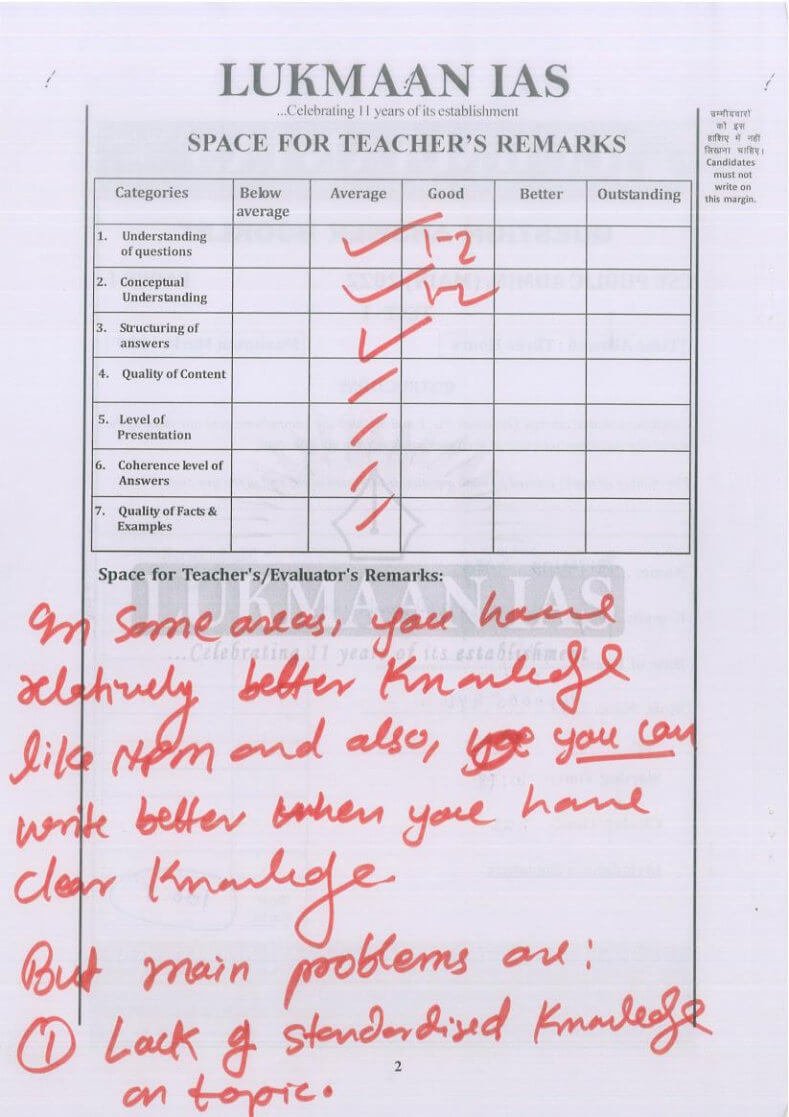 LUKMAAN IAS
...Celebrating 11 years of its establishment
SPACE FOR TEACHER'S REMARKS
उम्मीदवारों
को इस
हाशिए में नहीं
लिखना चाहिए।
Candidates
must not
write on
this margin.
Categories Below average Average Good Better Outstanding
1. Understanding
of questions 1-2
2. Conceptual
Understanding 1-2
3. Structuring of
answers
4. Quality of Content
5. Level of
Presentation
6. Coherence level of
Answers
7. Quality of Facts &
Examples
Space for Teacher's/Evaluator's Remarks:
LUKMAAN IAS
...Celebrating 11 years of its establishment
In some areas, you have
relatively better knowledge
like NPM and also, you can
write better when you have
clear knowledge.
But main problems are:
① Lack of standardised knowledge
on topic.
2